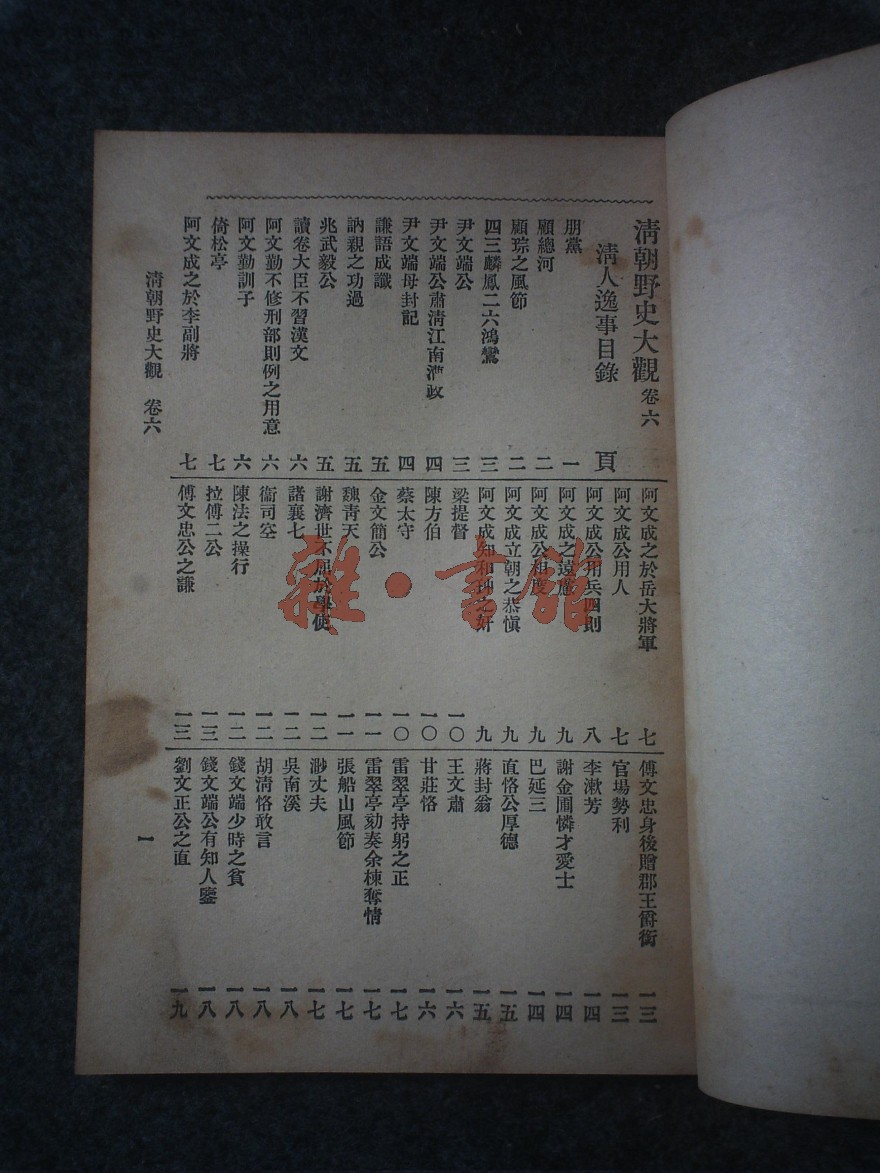 清朝野史大觀 卷六
清人逸事目錄 頁
朋黨 一
顧總河 二
顧琮之風節 二
四三麟鳳二六鴻鸞 三
尹文端公 三
尹文端公肅清江南漕政 四
尹文端母封記 四
謙語成讖 五
訥親之功過 五
兆武毅公 五
讀卷大臣不習漢文 六
阿文勤不修刑部則例之用意 六
阿文勤訓子 六
倚松亭 七
阿文成之於李副將 七
阿文成之於岳大將軍 七
阿文成公用人 七
阿文成公用兵四則 八
阿文成之遠嚴 九
阿文成公相度 九
阿文成立朝之恭慎 九
阿文成知和珅之奸 九
梁提督 一〇
陳方伯 一〇
蔡太守 一〇
金文簡公 一一
魏青天 一一
謝濟世不屈於學使 一二
諸襄七 一二
衞司空 一二
陳法之操行 一二
拉傅二公 一三
傅文忠公之謙 一三
傅文忠身後贈郡王爵銜 一三
官場勢利 一三
李漱芳 一四
謝金圃憐才愛士 一四
巴延三 一四
直恪公厚德 一五
蔣封翁 一五
王文肅 一六
甘莊恪 一六
雷翠亭持躬之正 一七
雷翠亭劾奏余棟奪情 一七
張船山風節 一七
渺丈夫 一七
吳南溪 一八
胡清恪敢言 一八
錢文端少時之貧 一八
錢文端公有知人鑒 一八
劉文正公之直 一九
清朝野史大觀 卷六
一
雜·書館